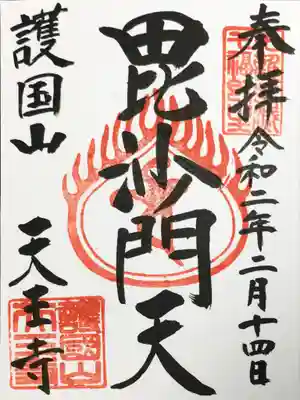 奉拝
令和二年二月十四日
毘沙門天
護国山
天王寺